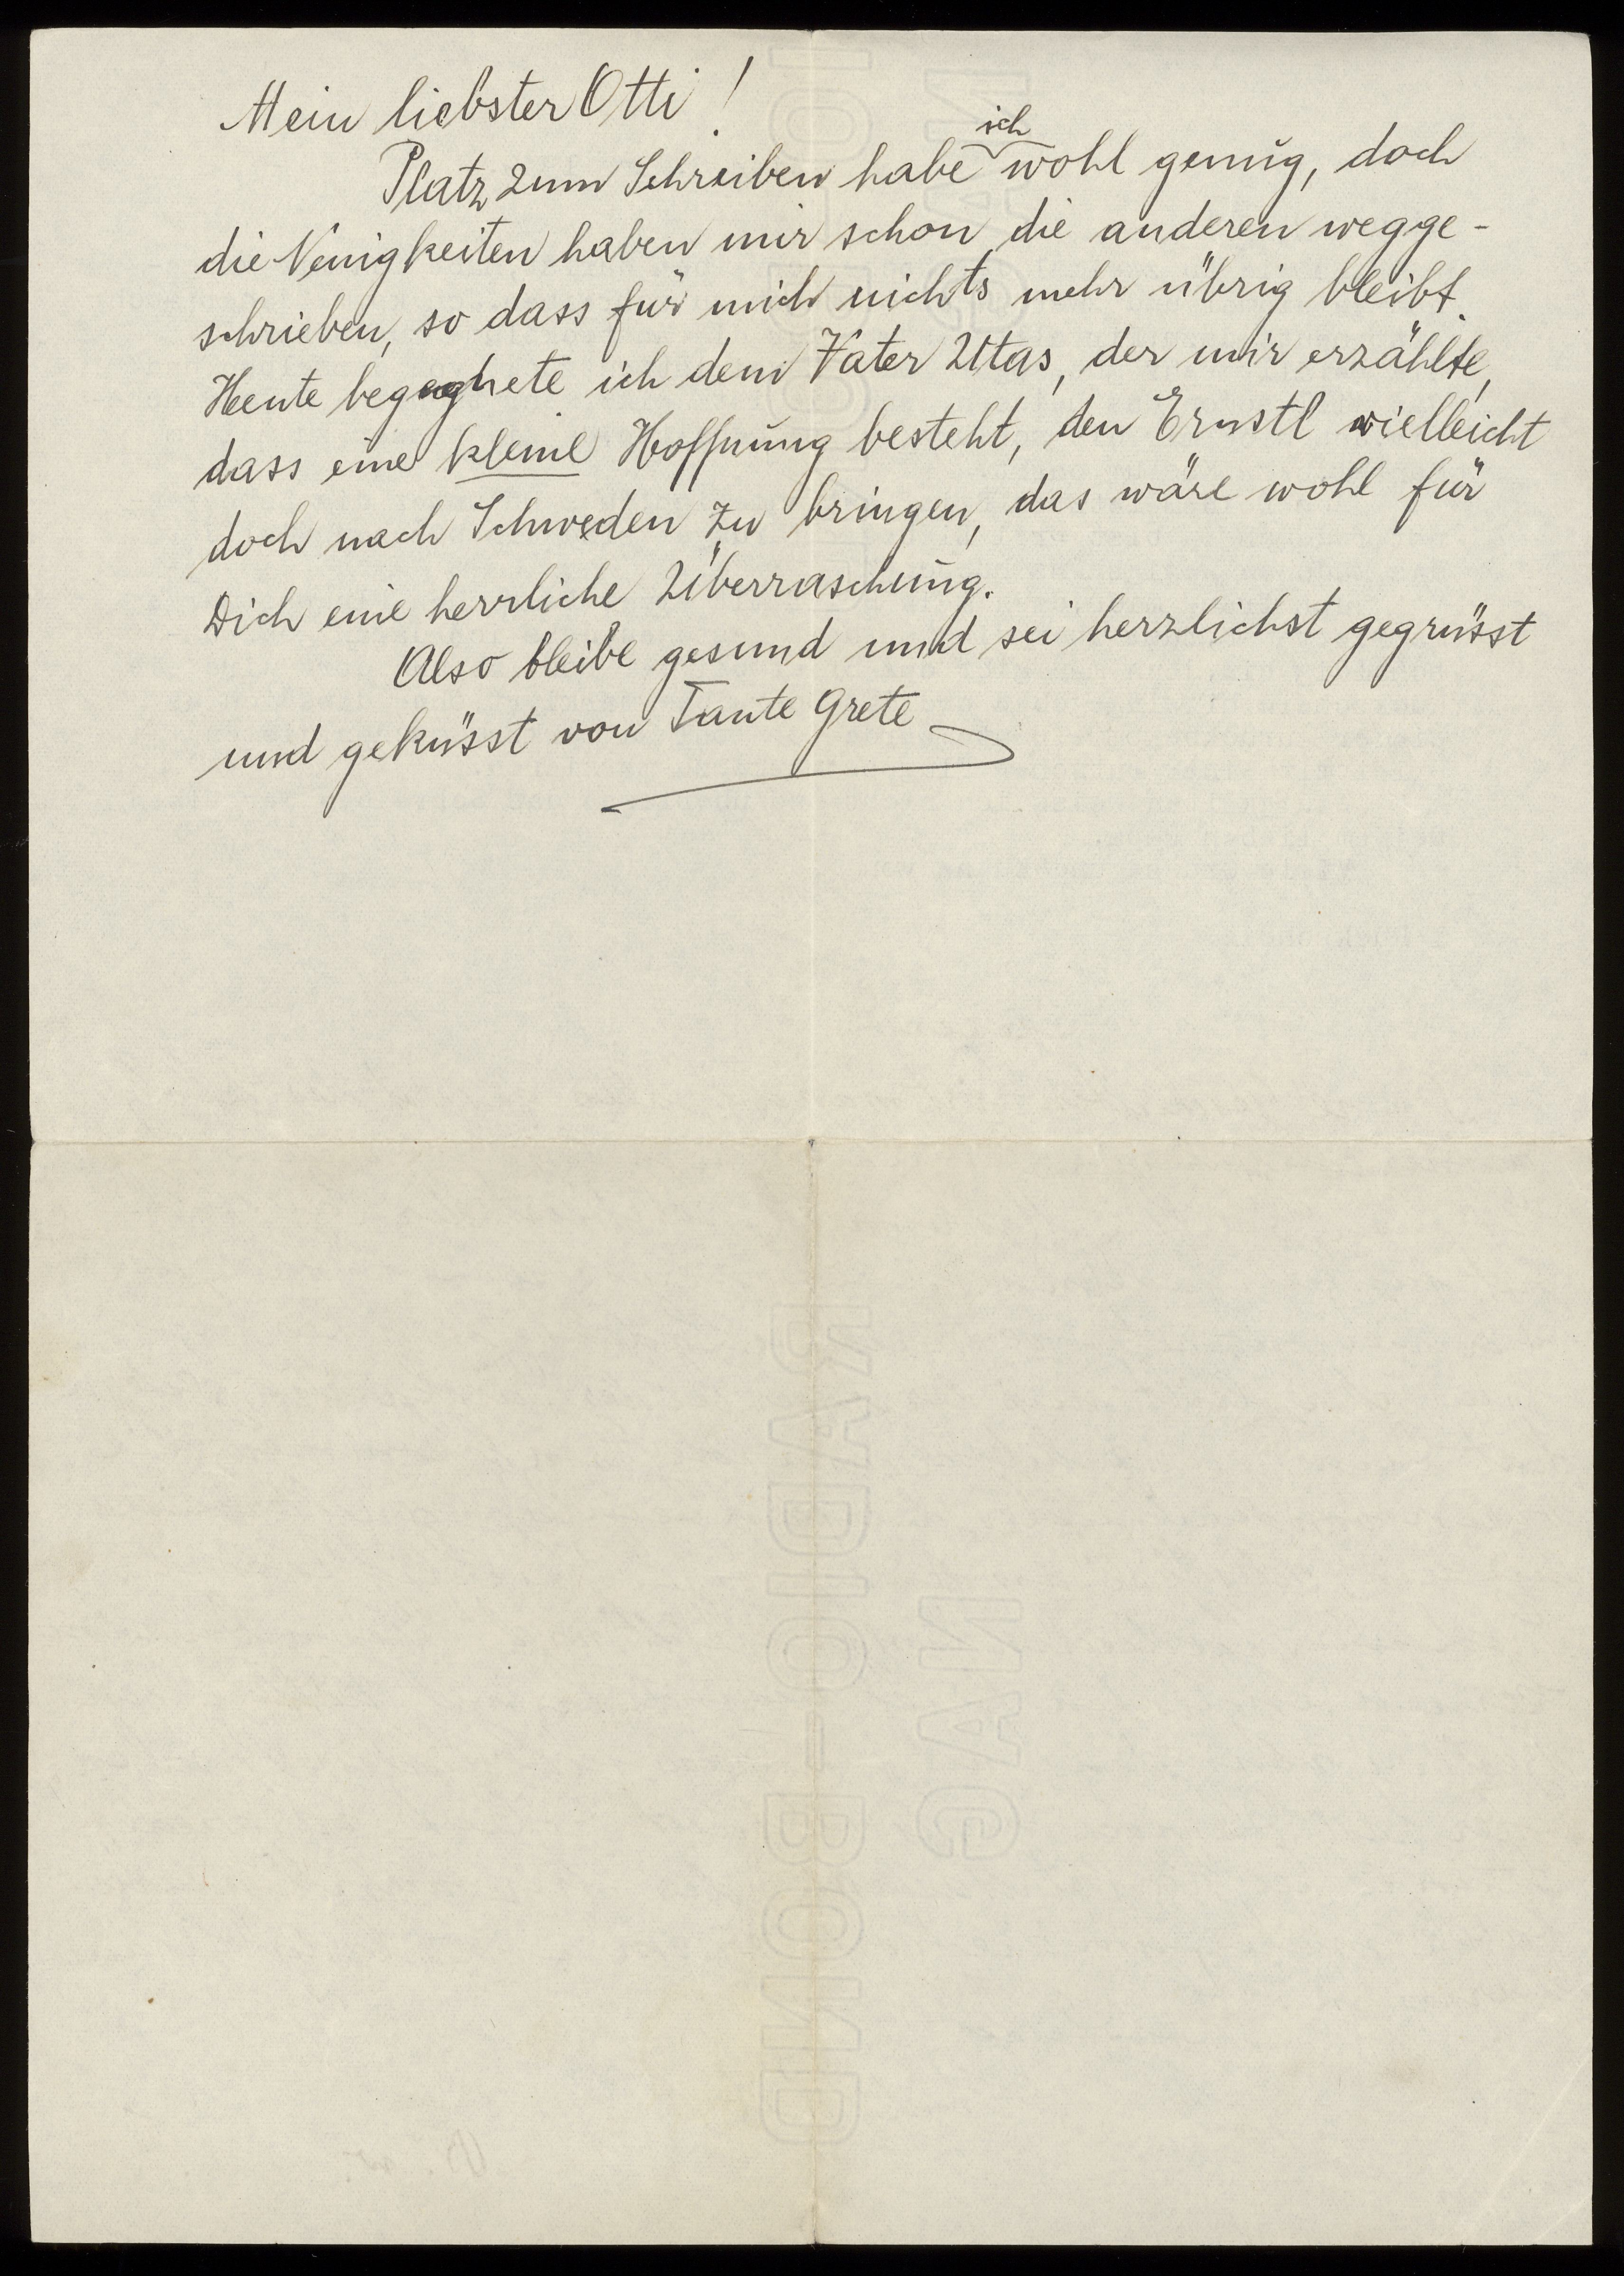 Mein liebster Otti!
Platz zum Schreiben habe ich wohl genug, doch
die Neuigkeiten haben mir schon die anderen wegge-
schrieben, so dass für mich nichts mehr übrig bleibt.
Heute begegnete ich dem Vater Utas, der mir erzählte,
dass eine kleine Hoffnung besteht, den Ernstl vielleicht
doch nach Schweden zu bringen, das wäre wohl für
Dich eine herrliche Überraschung.
Also bleibe gesund und sei herzlichst gegrüsst
und geküsst von Tante Grete
RADIO-BOND